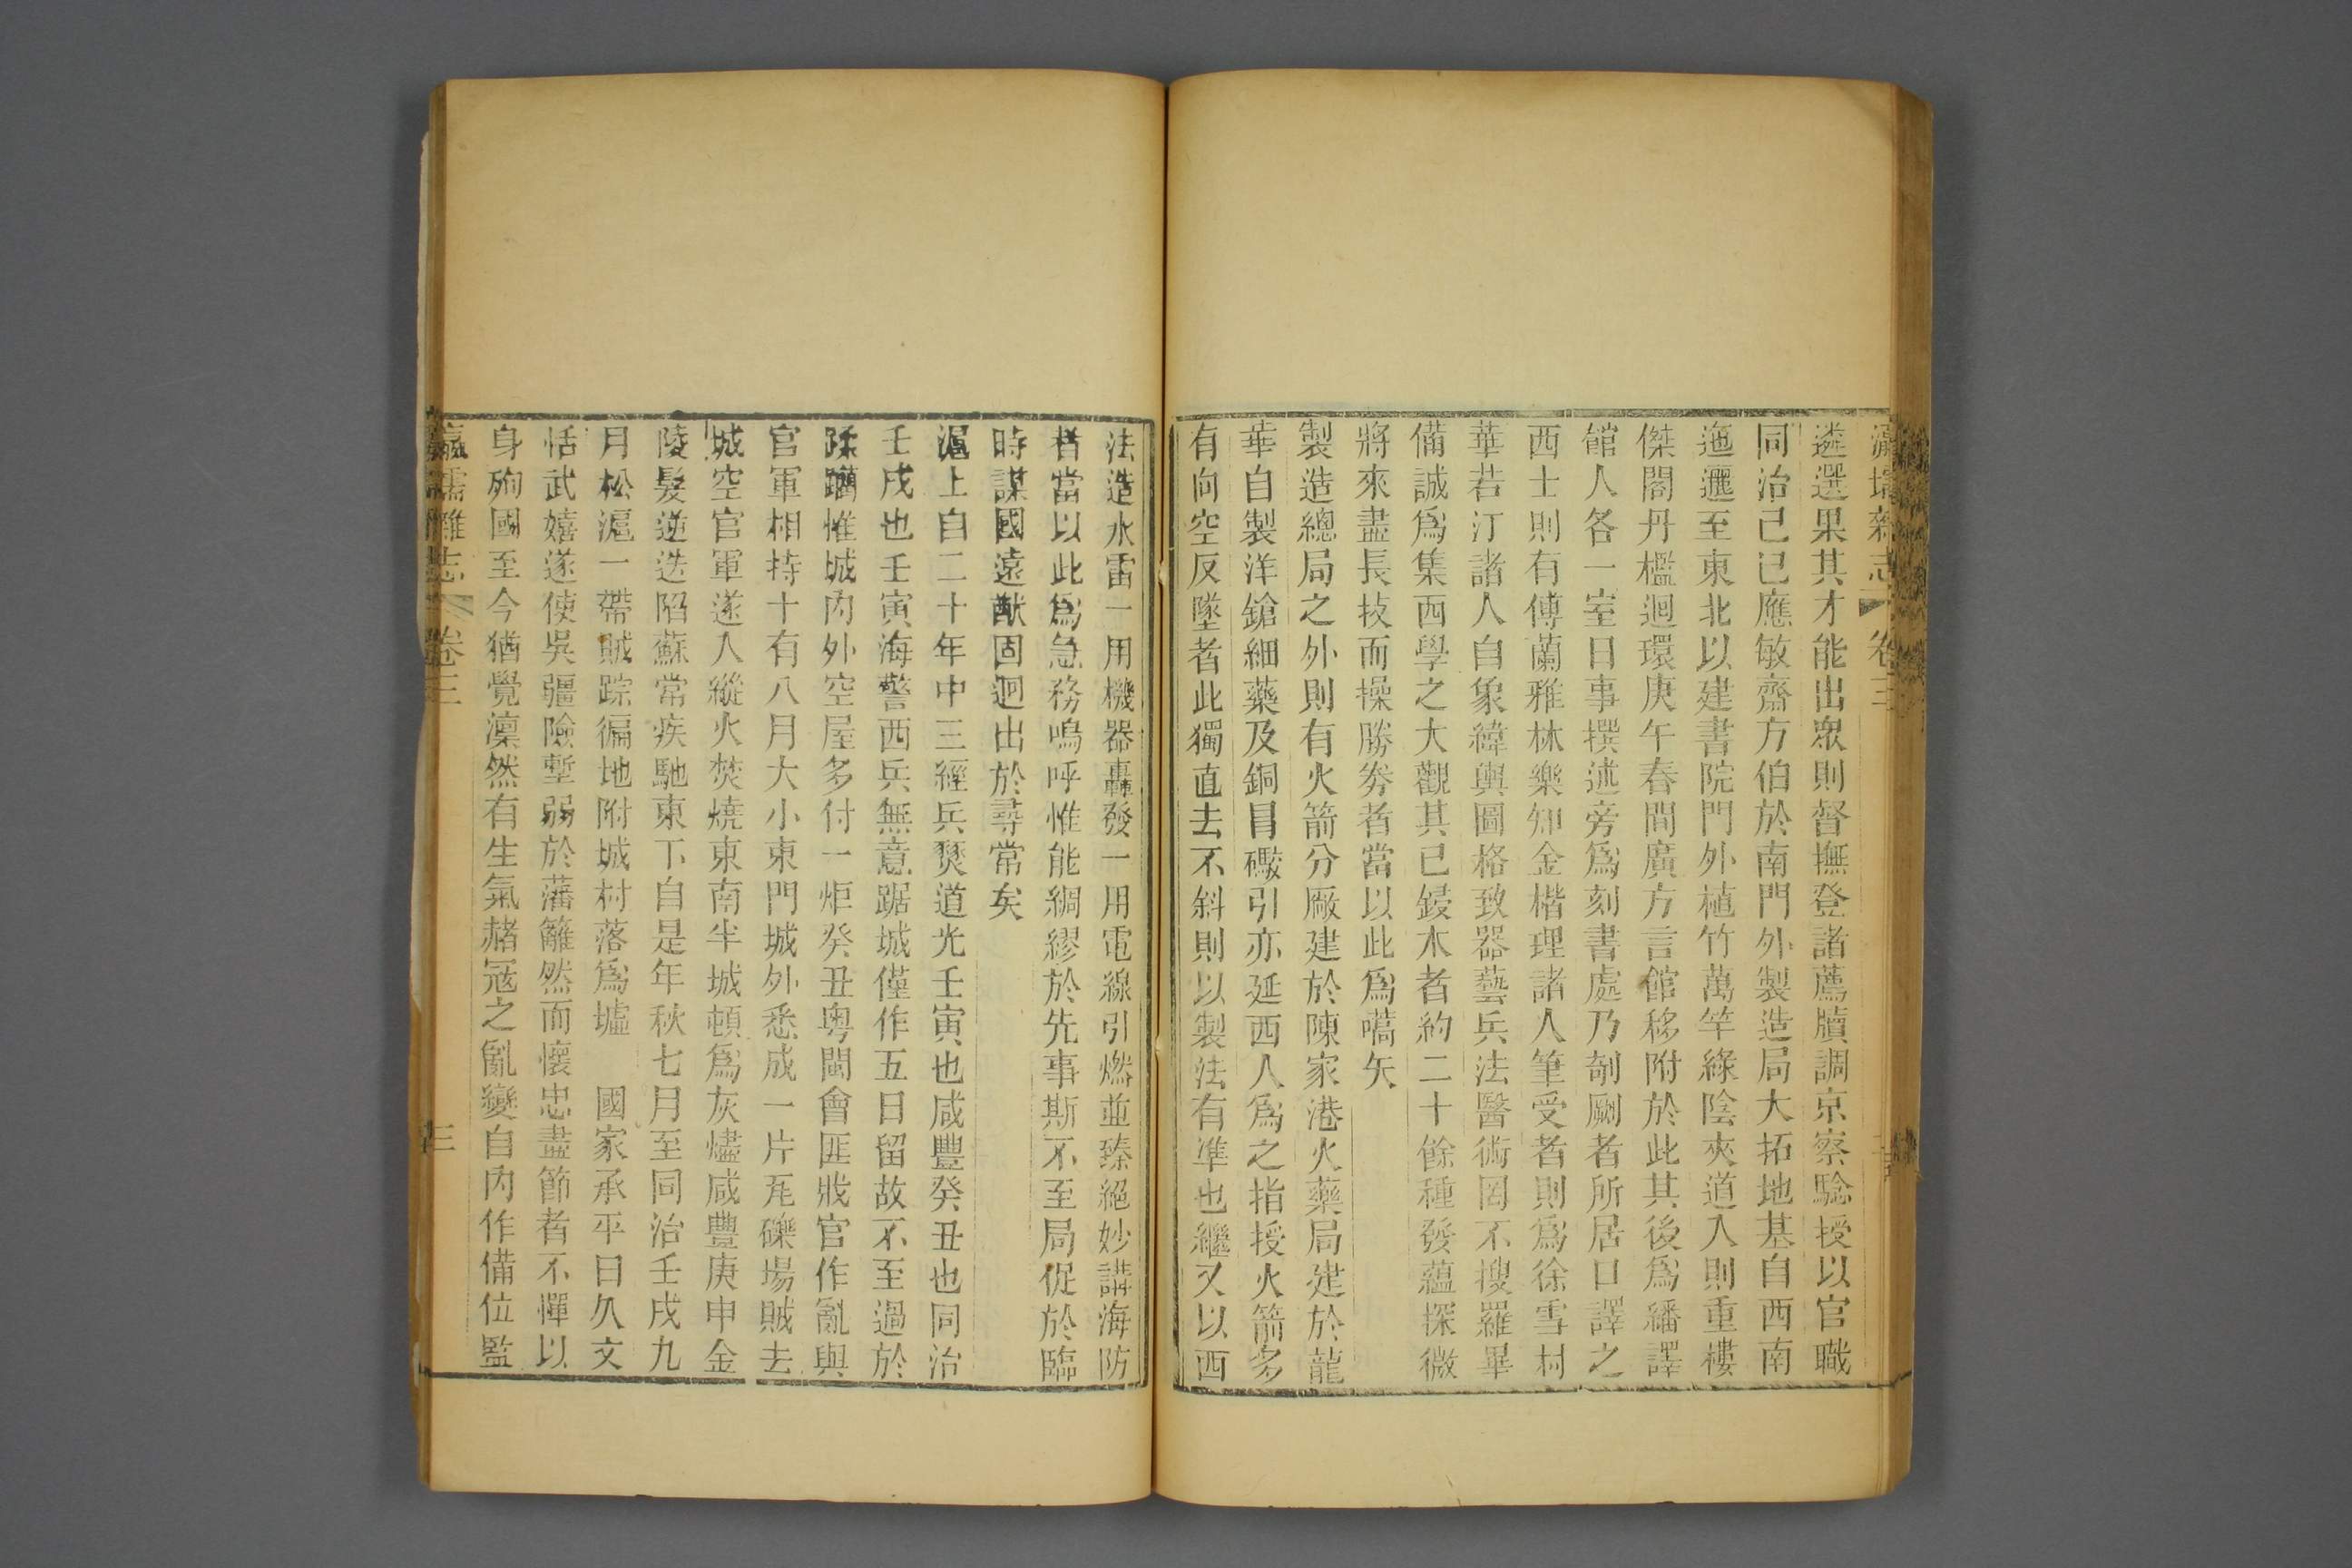 瀛壖雜志 卷三
遴選果其才能出眾則督撫登諸薦牘調京察騐授以官職
同治己巳應敏齋方伯於南門外製造局大拓地基自西南
迤邐至東北以建書院門外植竹萬竿綠陰夾道入則重樓
傑閣丹檻迴環庚午春間廣方言館移附於此其後爲繙譯
館人各一室日事撰述旁爲刻書處乃剞劂者所居口譯之
西士則有傅蘭雅林樂知金楷理諸人筆受者則爲徐雪村
華若汀諸人自象緯輿圖格致器藝兵法醫術罔不搜羅畢
備誠爲集西學之大觀其已鋟木者約二十餘種發蘊探微
將來盡長技而操勝券者當以此爲嚆矢
製造總局之外則有火箭分廠建於陳家港火藥局建於龍
華自製洋鎗細藥及銅冒礮引亦延西人爲之指授火箭多
有向空反墜者此獨直去不斜則以製法有準也繼又以西
法造水雷一用機器轟發一用電線引燃並臻絕妙講海防
者當以此爲急務嗚呼惟能綢繆於先事斯不至局促於臨
時謀國遠猷固迥出於尋常矣
滬上自二十年中三經兵燹道光壬寅也咸豐癸丑也同治
壬戌也壬寅海警西兵無意踞城僅作五日留故不至過於
蹂躪惟城內外空屋多付一炬癸丑粵閩會匪戕官作亂與
官軍相持十有八月大小東門城外悉成一片瓦礫場賊去
城空官軍遂入縱火焚燒東南半城頓爲灰燼咸豐庚申金
陵髮逆迭陷蘇常疾馳東下自是年秋七月至同治壬戌九
月松滬一帶賊踪徧地附城村落爲墟 國家承平日久文
恬武嬉遂使吳疆險塹弱於藩籬然而懷忠盡節者不憚以
身殉國至今猶覺凜然有生氣赭冦之亂變自內作備位監
瀛壖雜志 卷三 三